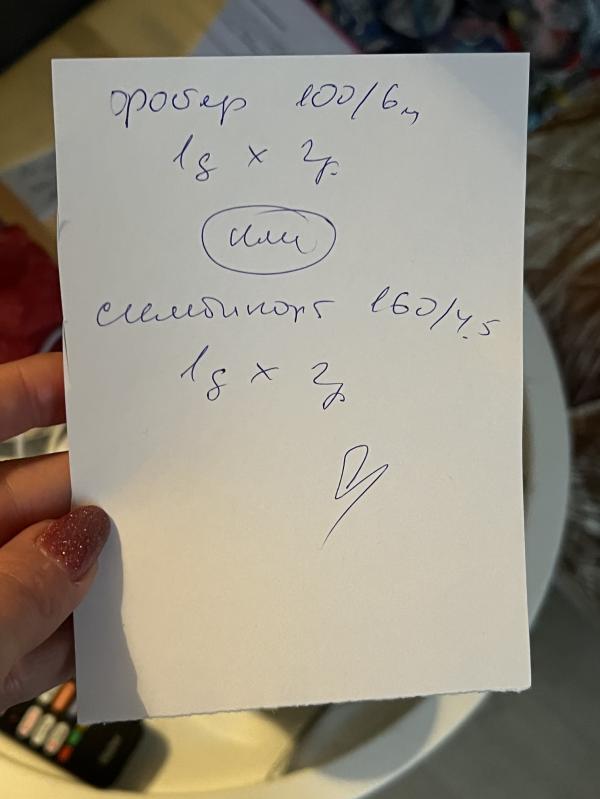 Фостер 100/6 м
1д x 2р
или
симбикорт 160/4.5
1д x 2р